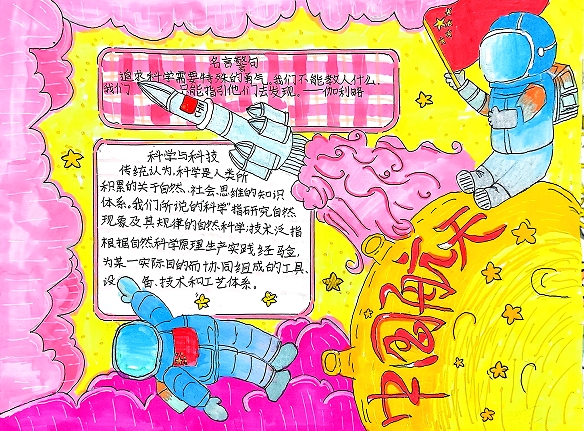 名言警句
追求科学需要特殊的勇气，我们不能教人什么，
我们 只能指引他们去发现。——伽利略
科学与科技
传统认为，科学是人类所
积累的关于自然、社会、思维的知识
体系。我们所说的科学"指研究自然
现象及其规律的自然科学；技术泛指
根据自然科学原理生产实践经验，
为某一实际目的而协同组成的工具、
设备、技术和工艺体系。
中国航天